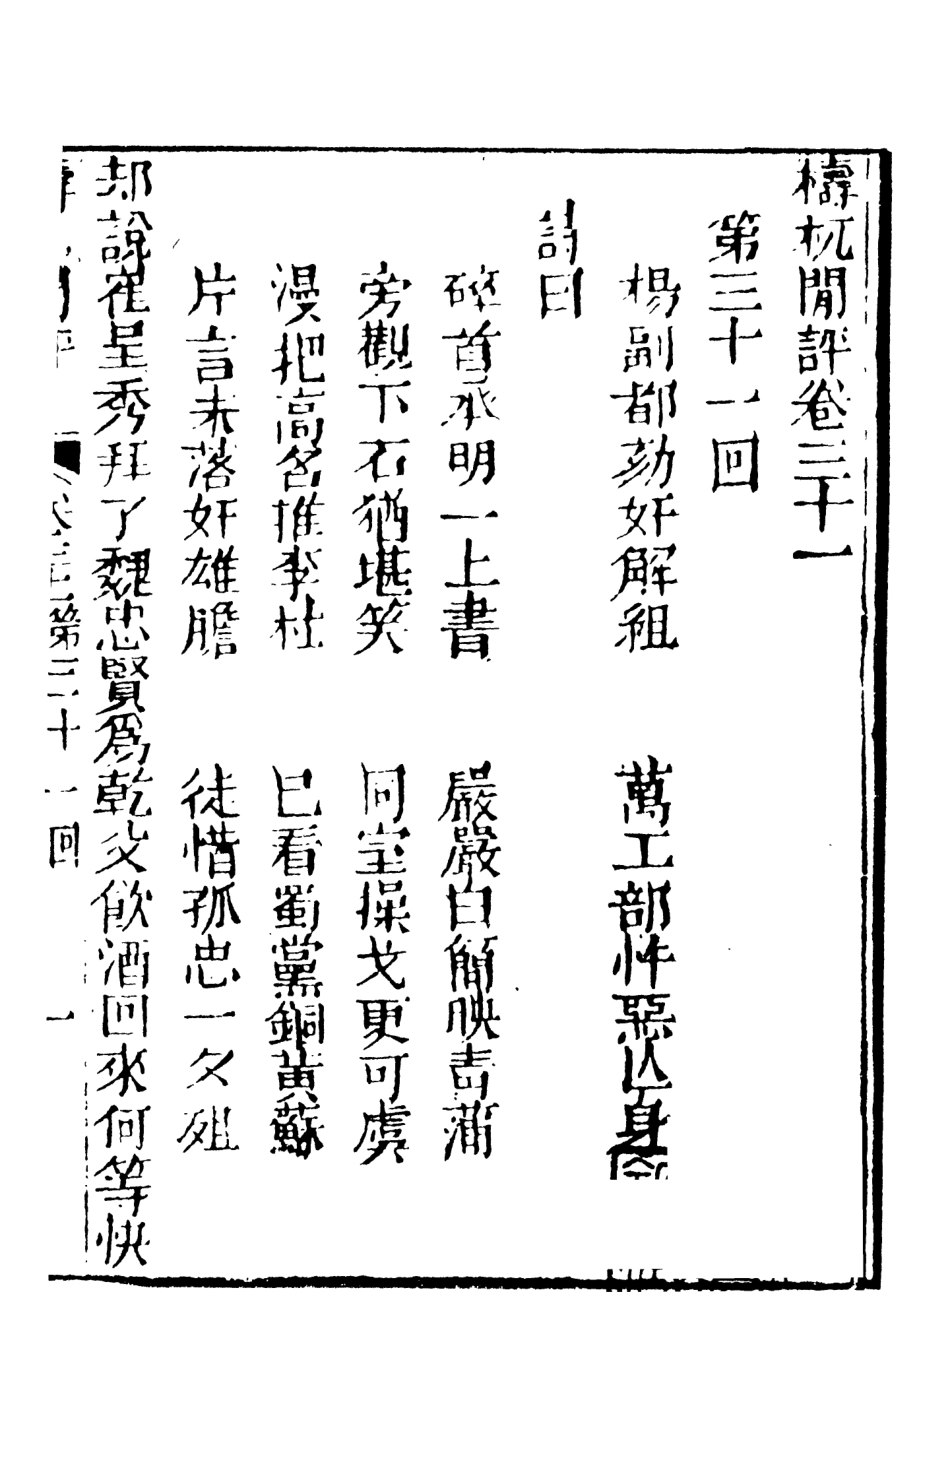 檮杌閒評卷三十一
第三十一回
楊副都劾奸解組　萬工部忤惡亡身
詩曰
碎首承明一上書　嚴嚴白簡映青蒲
旁觀下石猶堪笑　同室操戈更可虞
漫把高名推李杜　已看蜀黨錮黃蘇
片言未落奸雄膽　徒惜孤忠一夕殂
却說崔呈秀拜了魏忠賢爲乾父飲酒回來何等快
第三十一回　一